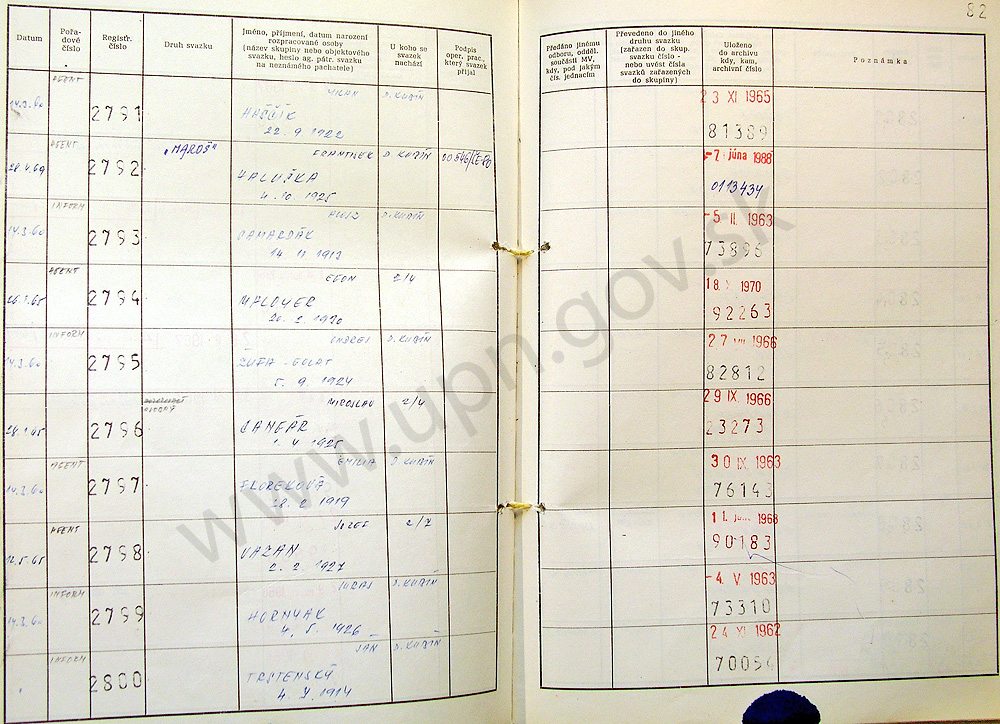 82
Datum
Pořa-
dové
číslo
Registr.
číslo
Druh svazku
Jméno, příjmení, datum narození
rozpracované osoby
(název skupiny nebo objektového
svazku, heslo ag. pátr. svazku
na neznámého pachatele)
U koho se
svazek
nachází
Podpis
oper. prac.,
který svazek
přijal
Předáno jinému
odboru, odděl.
součásti MV,
kdy, pod jakým
čís. jednacím
Převedeno do jiného
druhu svazku
(zařazen do skup.
svazku číslo -
nebo uvést čísla
svazků zařazených
do skupiny)
Uloženo
do archivu
kdy, kam,
archivní číslo
Poznámka
AGENT
14.3.60 2791 MILAN D. KUBÍN 23 XI 1965
HAŠČÍK
22. 9 1922 81389
AGENT
28.4.69 2792 „MAROŠ" FRANTIŠEK D. KUBÍN -7. júna 1988
HALUŠKA
4. 10. 1925 0113434
INFORM
14.3.60 2793 ALOJZ D. KUBÍN -5 II. 1963
14 11 1913 73895
AGENT
2794 EGON 2/4 18 1970
92263
INFORM
14.3.60 2795 ONDREJ D. KUBÍN 27 VII 1966
5. 9. 1924 82812
28.1.65 2796 MIROSLAV 2/4 29 IX. 1966
1. 4 1925 23273
AGENT
14.3.60 2797 EMILIA D. KUBÍN 30 IX. 1963
FLOREKOVÁ
18. 2 1919 76143
AGENT
12.5.65 2798 JOZEF 2/7 11. 1968
VAZAN
2. 2 1927 90183
INFORM
14.3.60 2799 JURAJ D. KUBÍN -4. V 1963
HORNYAK
4. 5. 1926 73310
INFORM
2800 JÁN D. KUBÍN 24 XI 1962
TRSTENSKÝ
1914 70054
www.upn.gov.sk